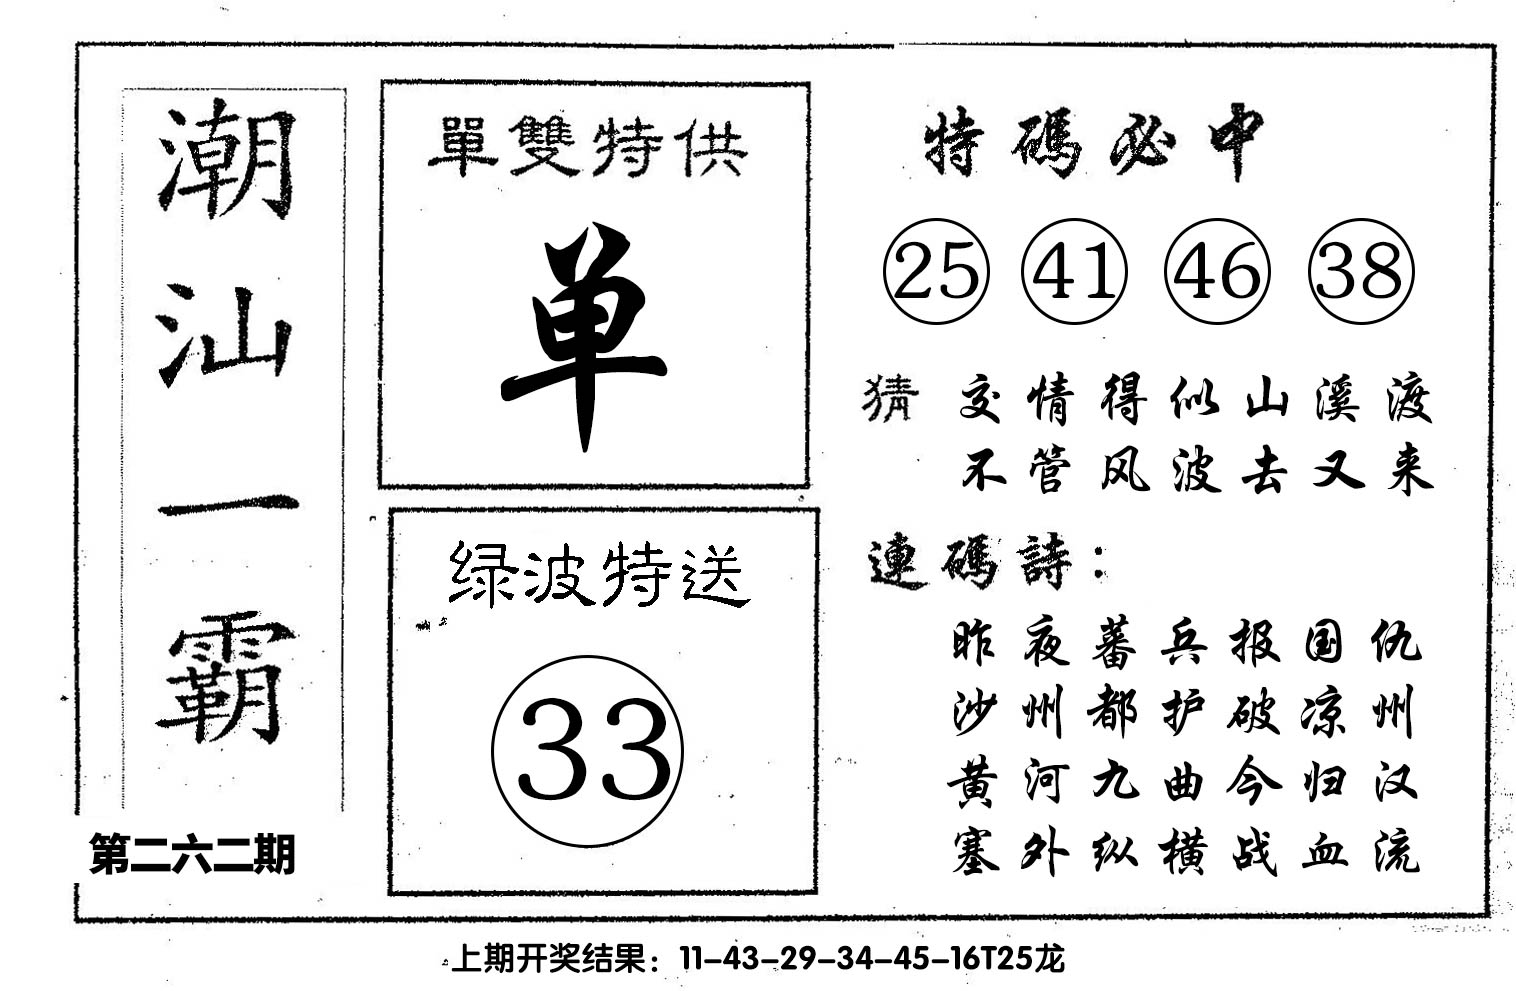 潮汕一霸
第二六二期
單雙特供
单
绿波特送
33
特碼必中
25 41 46 38
猜 交情得似山溪渡
不管风波去又来
連碼詩：
昨夜蕃兵报国仇
沙州都护破凉州
黄河九曲今归汉
塞外纵横战血流
上期开奖结果：11-43-29-34-45-16T25龙